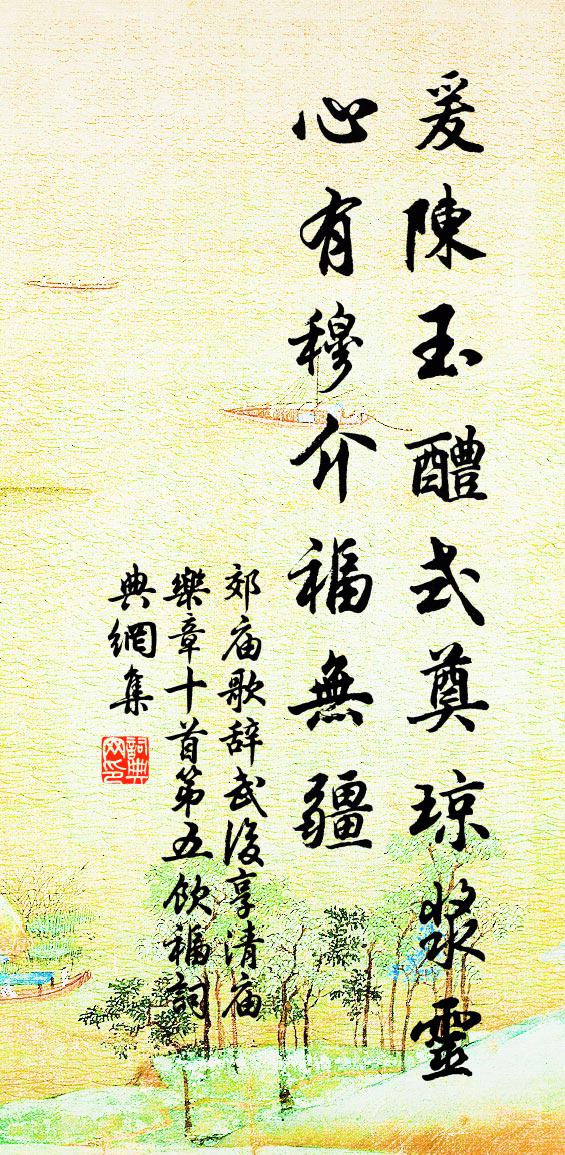 爰陳玉醴式奠琼漿靈
心有穆介福無疆
郊庙歌辞武後享清庙
樂章十首第五飲福詞
典網集
詞典
网印